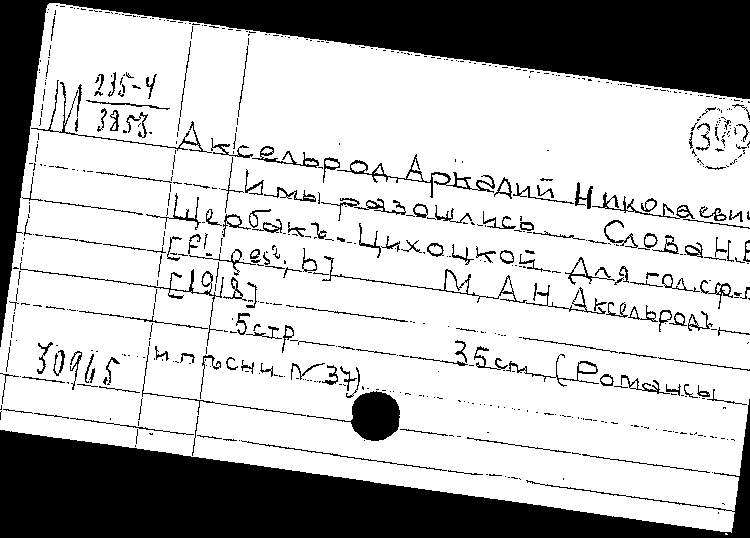 М 235-4
3853.
392
Аксельрод, Аркадий Николаевич
И мы разошлись... Слова Н.В.
Щербакъ-Цихоцкой. Для гол. с ф.-п.
[f¹. ges², b]. М., А.Н. Аксельродъ,
[1918]
5 стр 35 см. (Романсы
30965 и пѣсни № 37).